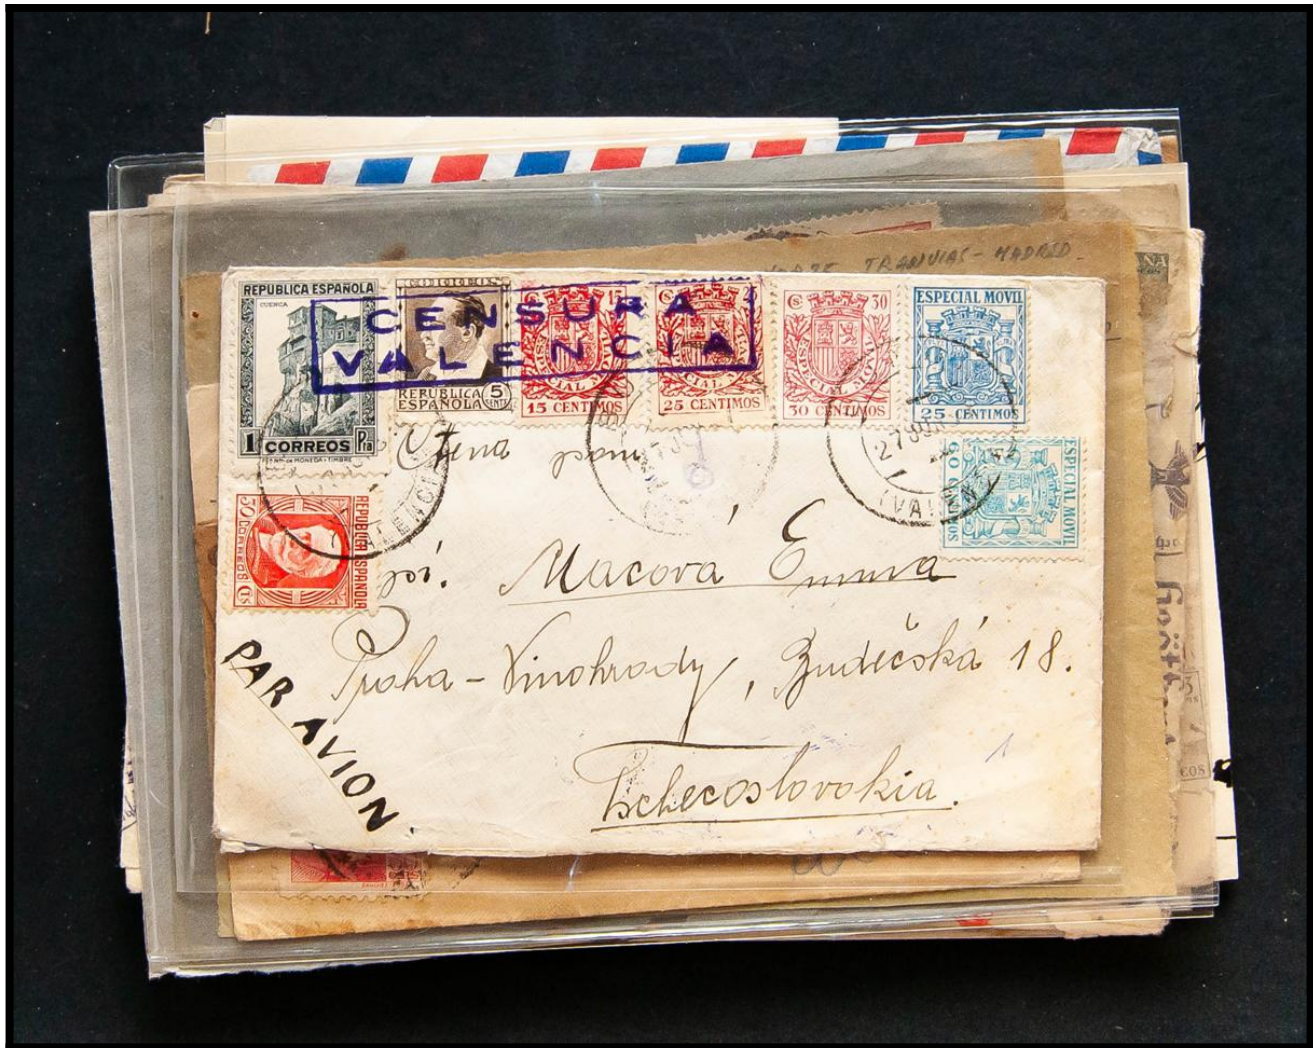 TRANVIAS - MADRID.
REPUBLICA ESPAÑOLA
CUENCA
1 CORREOS Pta
CORREOS
REPUBLICA
ESPAÑOLA
5
CENSURA
VALENCIA
15
ESPECIAL MOVIL
15 CENTIMOS
ESPECIAL MOVIL
25 CENTIMOS
30
ESPECIAL MOVIL
30 CENTIMOS
ESPECIAL MOVIL
25 CENTIMOS
ESPECIAL MOVIL
60
REPUBLICA ESPAÑOLA
50 CORREOS Cts
VALENCI
27
(VALEN
Macová Emma
Praha - Vinohrady, Budečská 18.
Tschecoslovakia.
PAR AVION.